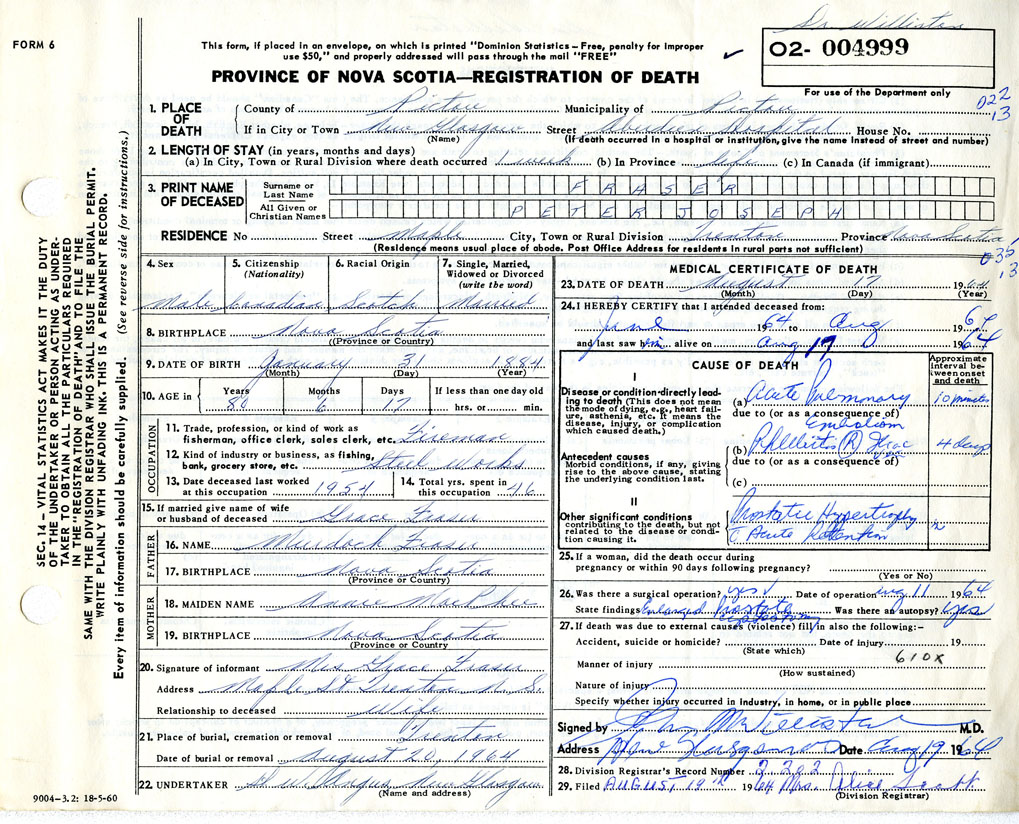 Dr. Williston
FORM 6
This form, if placed in an envelope, on which is printed "Dominion Statistics – Free, penalty for improper
use $50," and properly addressed will pass through the mail "FREE"
✓
O2- 004999
For use of the Department only
PROVINCE OF NOVA SCOTIA—REGISTRATION OF DEATH
022
13
1. PLACE OF DEATH
County of Pictou Municipality of Pictou
If in City or Town New Glasgow Street Aberdeen Hospital House No.
(Name) (If death occurred in a hospital or institution, give the name instead of street and number)
2. LENGTH OF STAY (in years, months and days)
(a) In City, Town or Rural Division where death occurred 1 week (b) In Province life (c) In Canada (if immigrant)
3. PRINT NAME OF DECEASED
Surname or Last Name FRASER
All Given or Christian Names PETER JOSEPH
RESIDENCE No Street Maple City, Town or Rural Division Trenton Province Nova Scotia
(Residence means usual place of abode. Post Office Address for residents in rural parts not sufficient)
13
4. Sex
Male
5. Citizenship
(Nationality)
Canadian
6. Racial Origin
Scotch
7. Single, Married,
Widowed or Divorced
(write the word)
Married
8. BIRTHPLACE Nova Scotia
(Province or Country)
9. DATE OF BIRTH January 31 1884
(Month) (Day) (Year)
10. AGE in Years 80 Months 6 Days 17 If less than one day old
hrs. or min.
OCCUPATION
11. Trade, profession, or kind of work as
fisherman, office clerk, sales clerk, etc. Fireman
12. Kind of industry or business, as fishing,
bank, grocery store, etc. Steel Works
13. Date deceased last worked
at this occupation 1954
14. Total yrs. spent in
this occupation 46
15. If married give name of wife
or husband of deceased Grace Fraser
FATHER
16. NAME Murdock Fraser
17. BIRTHPLACE Nova Scotia
(Province or Country)
MOTHER
18. MAIDEN NAME Annie MacPhee
19. BIRTHPLACE Nova Scotia
(Province or Country)
20. Signature of informant Mrs Grace Fraser
Address Maple St Trenton N. S.
Relationship to deceased Wife
21. Place of burial, cremation or removal Trenton
Date of burial or removal August 20, 1964
22. UNDERTAKER New Glasgow
(Name and address)
MEDICAL CERTIFICATE OF DEATH
23. DATE OF DEATH August 17 1964
(Month) (Day) (Year)
24. I HEREBY CERTIFY that I attended deceased from:
June 1964 to Aug 1964
and last saw him alive on Aug 17 1964
CAUSE OF DEATH
Approximate
interval be-
tween onset
and death
I
Disease or condition directly lead-
ing to death (This does not mean
the mode of dying, e.g., heart fail-
ure, asthenia, etc. It means the
disease, injury, or complication
which caused death.)
(a) Acute Pulmonary 10 minutes
due to (or as a consequence of)
Embolism
Antecedent causes
Morbid conditions, if any, giving
rise to the above cause, stating
the underlying condition last.
(b) Phlebitis (R) Iliac 4 days
due to (or as a consequence of)
(c)
II
Other significant conditions
contributing to the death, but not
related to the disease or condi-
tion causing it.
Prostatic Hypertrophy
c Acute Retention
25. If a woman, did the death occur during
pregnancy or within 90 days following pregnancy?
(Yes or No)
26. Was there a surgical operation? yes Date of operation Aug 11 1964
State findings Enlarged Prostate Was there an autopsy? yes
27. If death was due to external causes (violence) fill in also the following:–
Accident, suicide or homicide? Date of injury 19
(State which)
610X
Manner of injury
(How sustained)
Nature of injury
Specify whether injury occurred in industry, in home, or in public place
Signed by M.D.
Address New Glasgow Date Aug 19 1964
28. Division Registrar's Record Number
29. Filed AUGUST 19th 1964 Mrs. Alice Scott
(Division Registrar)
9004-3.2: 18-5-60
SEC. 14—VITAL STATISTICS ACT MAKES IT THE DUTY
OF THE UNDERTAKER OR PERSON ACTING AS UNDER-
TAKER TO OBTAIN ALL THE PARTICULARS REQUIRED
IN THE "REGISTRATION OF DEATH" AND TO FILE THE
SAME WITH THE DIVISION REGISTRAR WHO SHALL ISSUE THE BURIAL PERMIT.
WRITE PLAINLY WITH UNFADING INK. THIS IS A PERMANENT RECORD.
Every item of information should be carefully supplied. (See reverse side for instructions.)